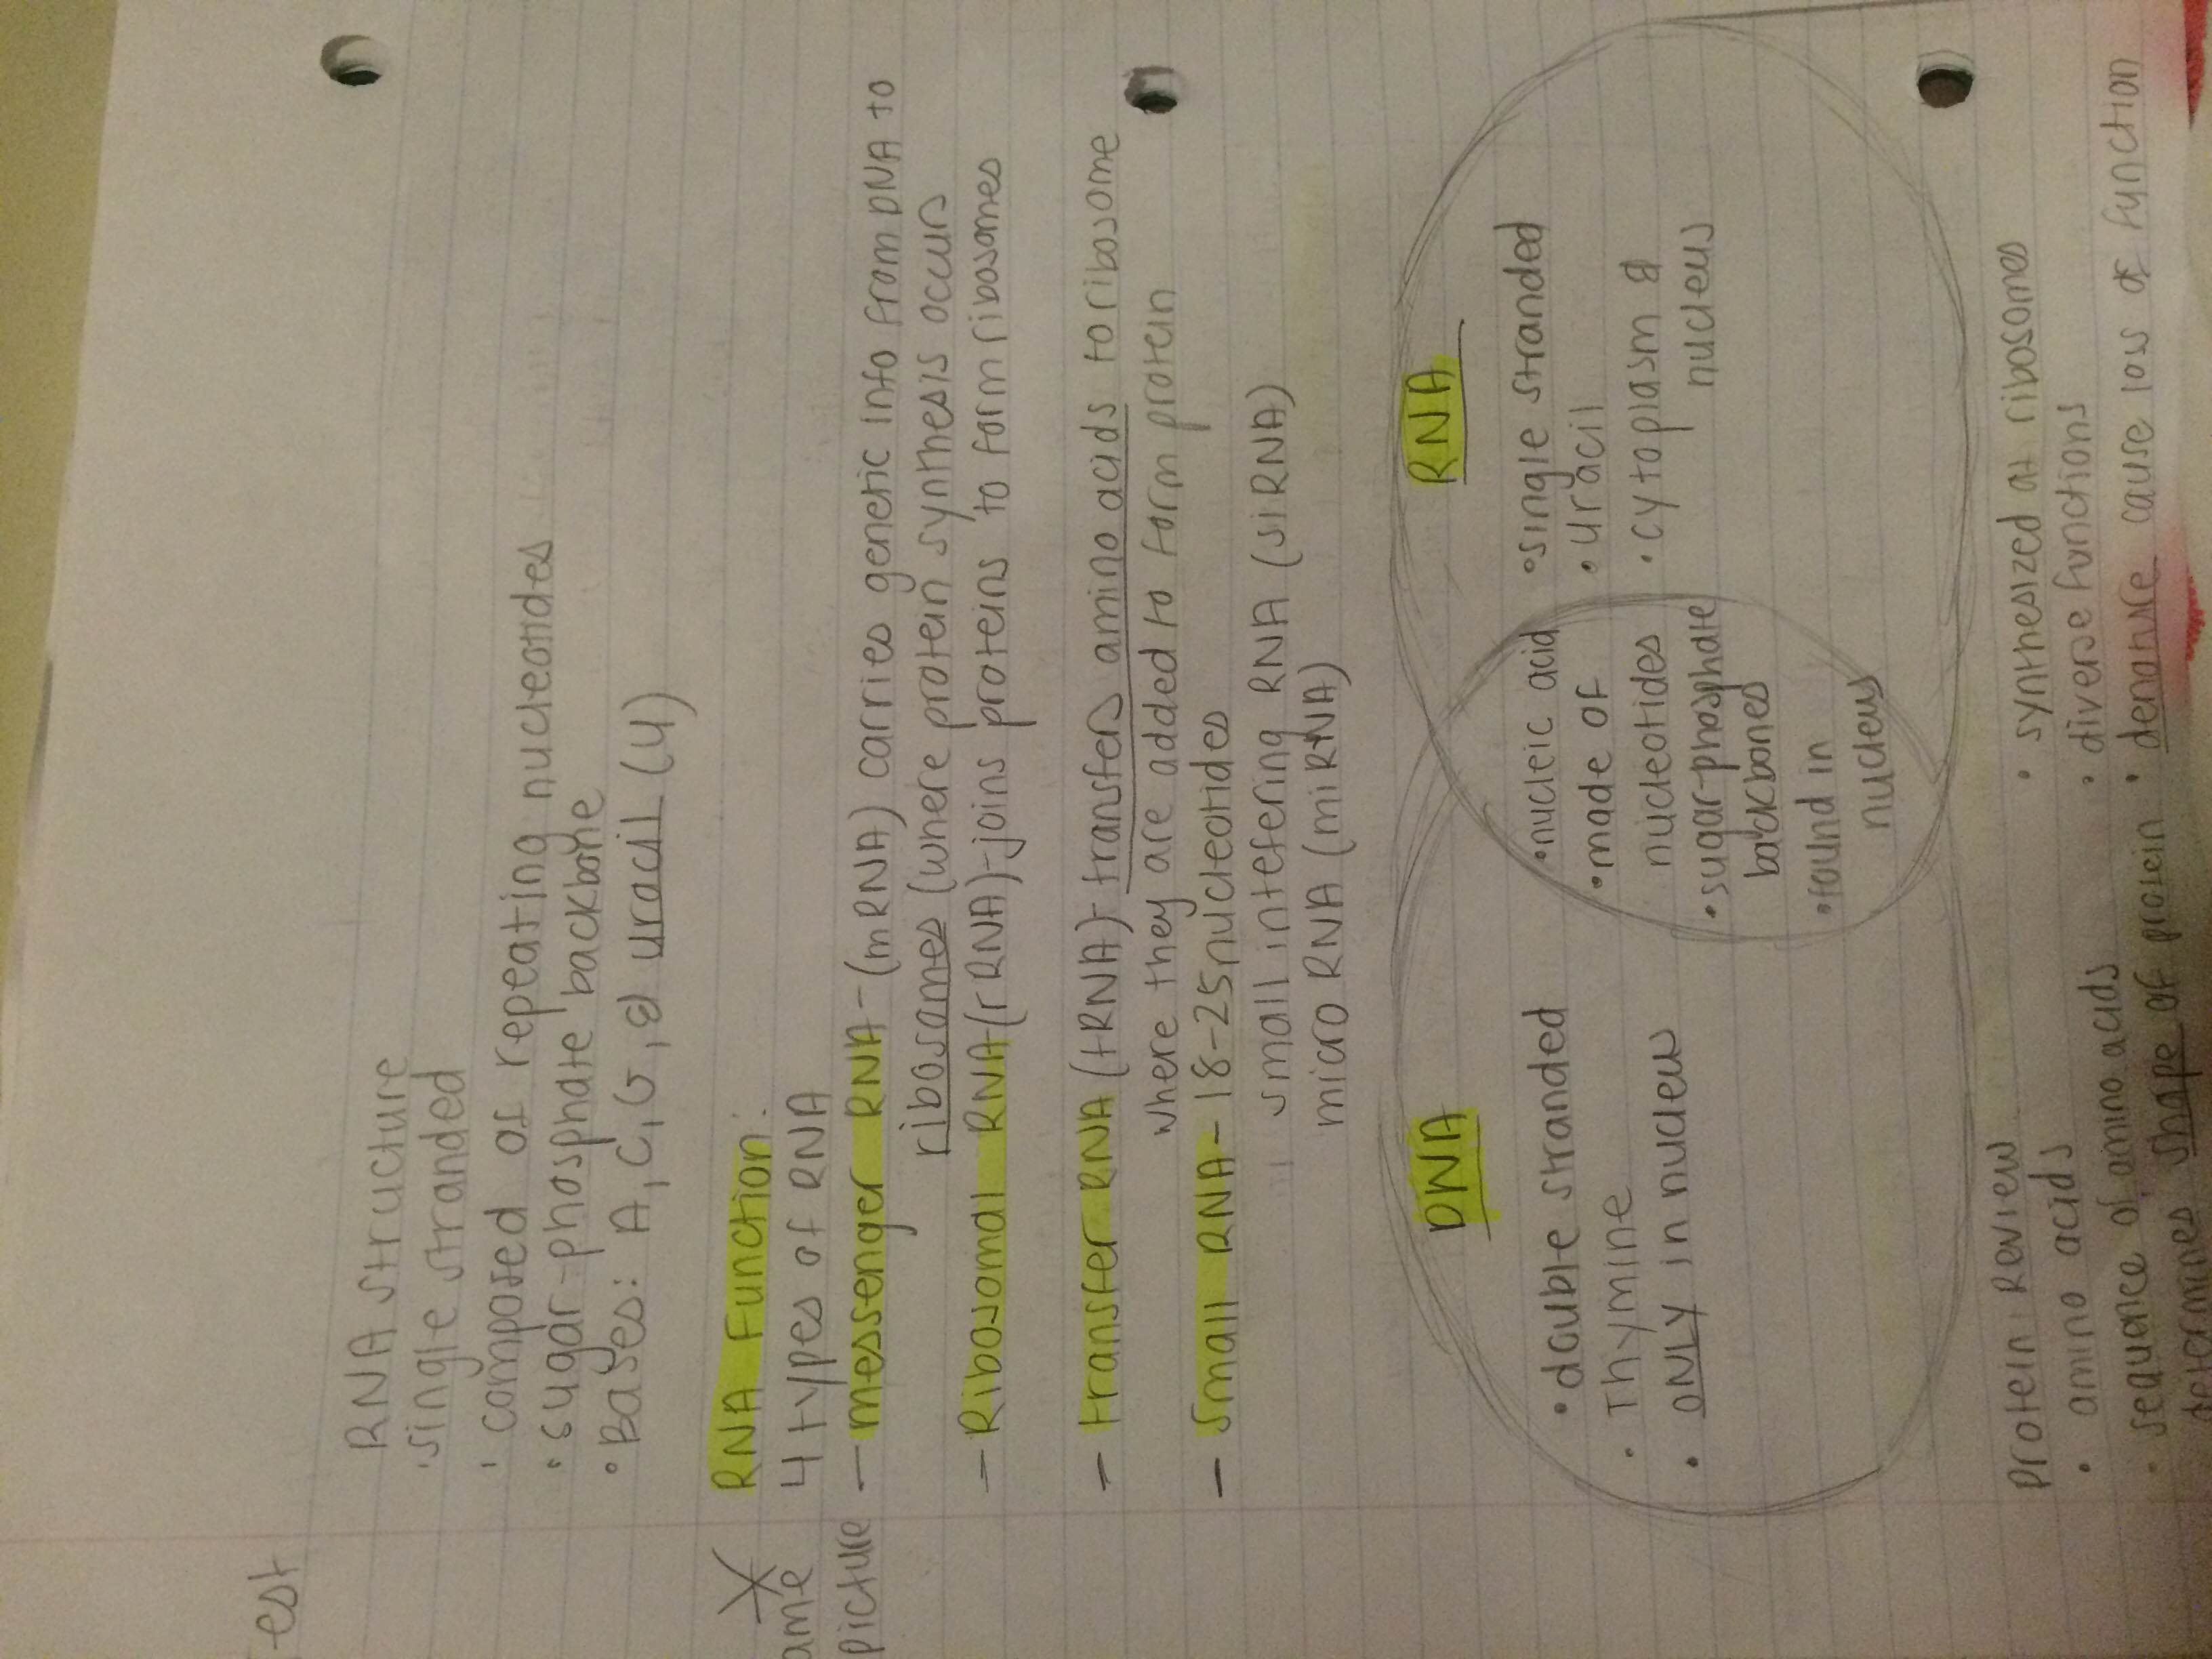 est
RNA structure
· single stranded
· composed of repeating nucleotides
· sugar-phosphate backbone
· Bases: A, C, G, & uracil (U)
RNA Function:
4 types of RNA
ame
picture
- messenger RNA - (mRNA) carries genetic info from DNA to
ribosomes (where protein synthesis occurs
- Ribosomal RNA - (rRNA) - joins proteins to form ribosomes
- transfer RNA (tRNA) - transfers amino acids to ribosome
where they are added to form protein
- Small RNA - 18-25 nucleotides
small intefering RNA (siRNA)
micro RNA (miRNA)
DNA
• double stranded
• Thymine
• ONLY in nucleus
• nucleic acid
• made of
nucleotides
• sugar-phosphate
backboned
• found in
nucleus
RNA
• single stranded
• uracil
• cytoplasm &
nucleus
protein Review
• amino acids
• sequence of amino acids
determines shape of protein
• synthesized at ribosomes
• diverse functions
• denature cause loss of function